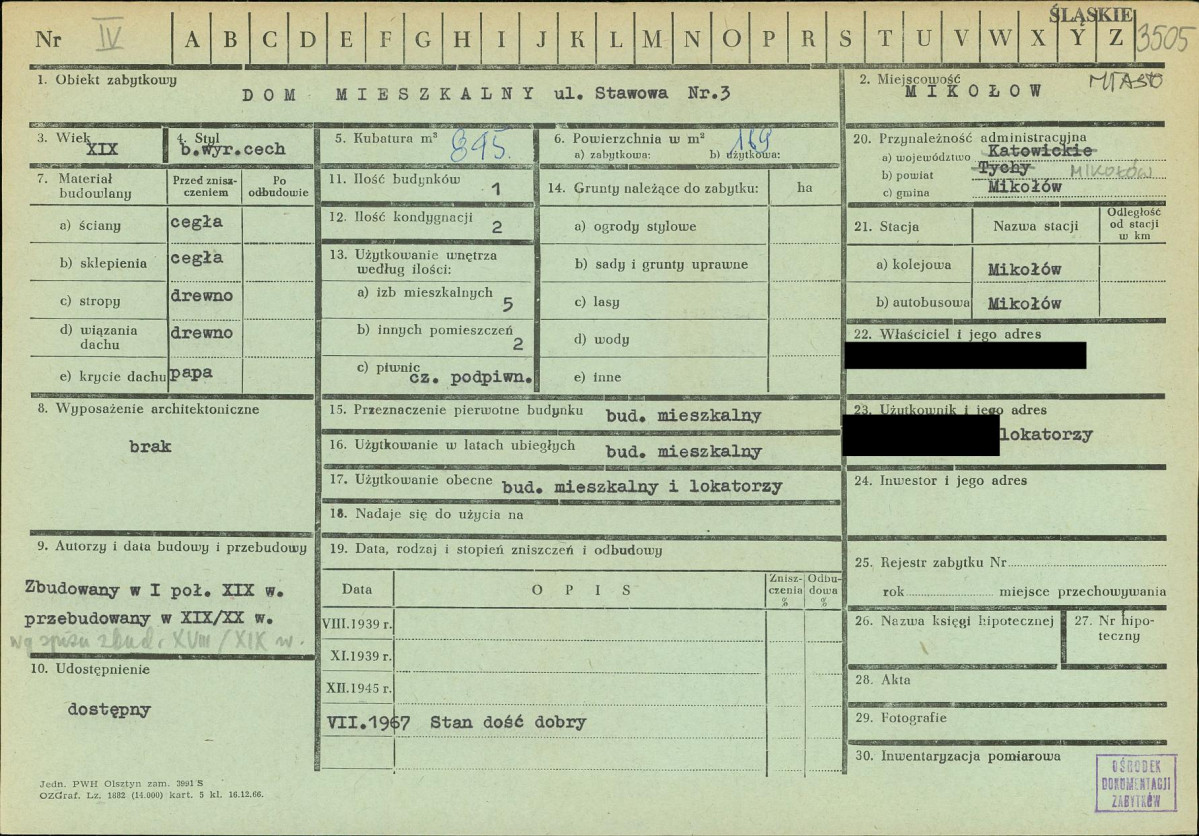 ŚLĄSKIE
Nr IV A B C D E F G H I J K L M N O P R S T U V W X Y Z 3505
1. Obiekt zabytkowy
DOM MIESZKALNY ul. Stawowa Nr.3
2. Miejscowość
MIKOŁOW MIASTO
3. Wiek
XIX
4. Styl
b.wyr.cech
5. Kubatura m³
845.
6. Powierzchnia w m²
a) zabytkowa: b) użytkowa:
169
7. Materiał budowlany
Przed zniszczeniem
Po odbudowie
a) ściany cegła
b) sklepienia cegła
c) stropy drewno
d) wiązania dachu drewno
e) krycie dachu papa
8. Wyposażenie architektoniczne
brak
9. Autorzy i data budowy i przebudowy
Zbudowany w I poł. XIX w.
przebudowany w XIX/XX w.
wg spisu zbud. XVIII/XIX w.
10. Udostępnienie
dostępny
11. Ilość budynków
1
12. Ilość kondygnacji
2
13. Użytkowanie wnętrza
według ilości:
a) izb mieszkalnych
5
b) innych pomieszczeń
2
c) piwnic
cz. podpiwn.
14. Grunty należące do zabytku: ha
a) ogrody stylowe
b) sady i grunty uprawne
c) lasy
d) wody
e) inne
15. Przeznaczenie pierwotne budynku bud. mieszkalny
16. Użytkowanie w latach ubiegłych bud. mieszkalny
17. Użytkowanie obecne bud. mieszkalny i lokatorzy
18. Nadaje się do użycia na
19. Data, rodzaj i stopień zniszczeń i odbudowy
Data OPIS Zniszczenia % Odbudowa %
VIII.1939 r.
XI.1939 r.
XII.1945 r.
VII.1967 Stan dość dobry
20. Przynależność administracyjna
a) województwo Katowickie
b) powiat Tychy MIKOŁÓW
c) gmina Mikołów
21. Stacja Nazwa stacji Odległość od stacji w km
a) kolejowa Mikołów
b) autobusowa Mikołów
22. Właściciel i jego adres
23. Użytkownik i jego adres
lokatorzy
24. Inwestor i jego adres
25. Rejestr zabytku Nr
rok miejsce przechowywania
26. Nazwa księgi hipotecznej
27. Nr hipoteczny
28. Akta
29. Fotografie
30. Inwentaryzacja pomiarowa
OŚRODEK
DOKUMENTACJI
ZABYTKÓW
Jedn. PWH Olsztyn zam. 3991 S
OZGraf. Lz. 1882 (14.000) kart. 5 kl. 16.12.66.